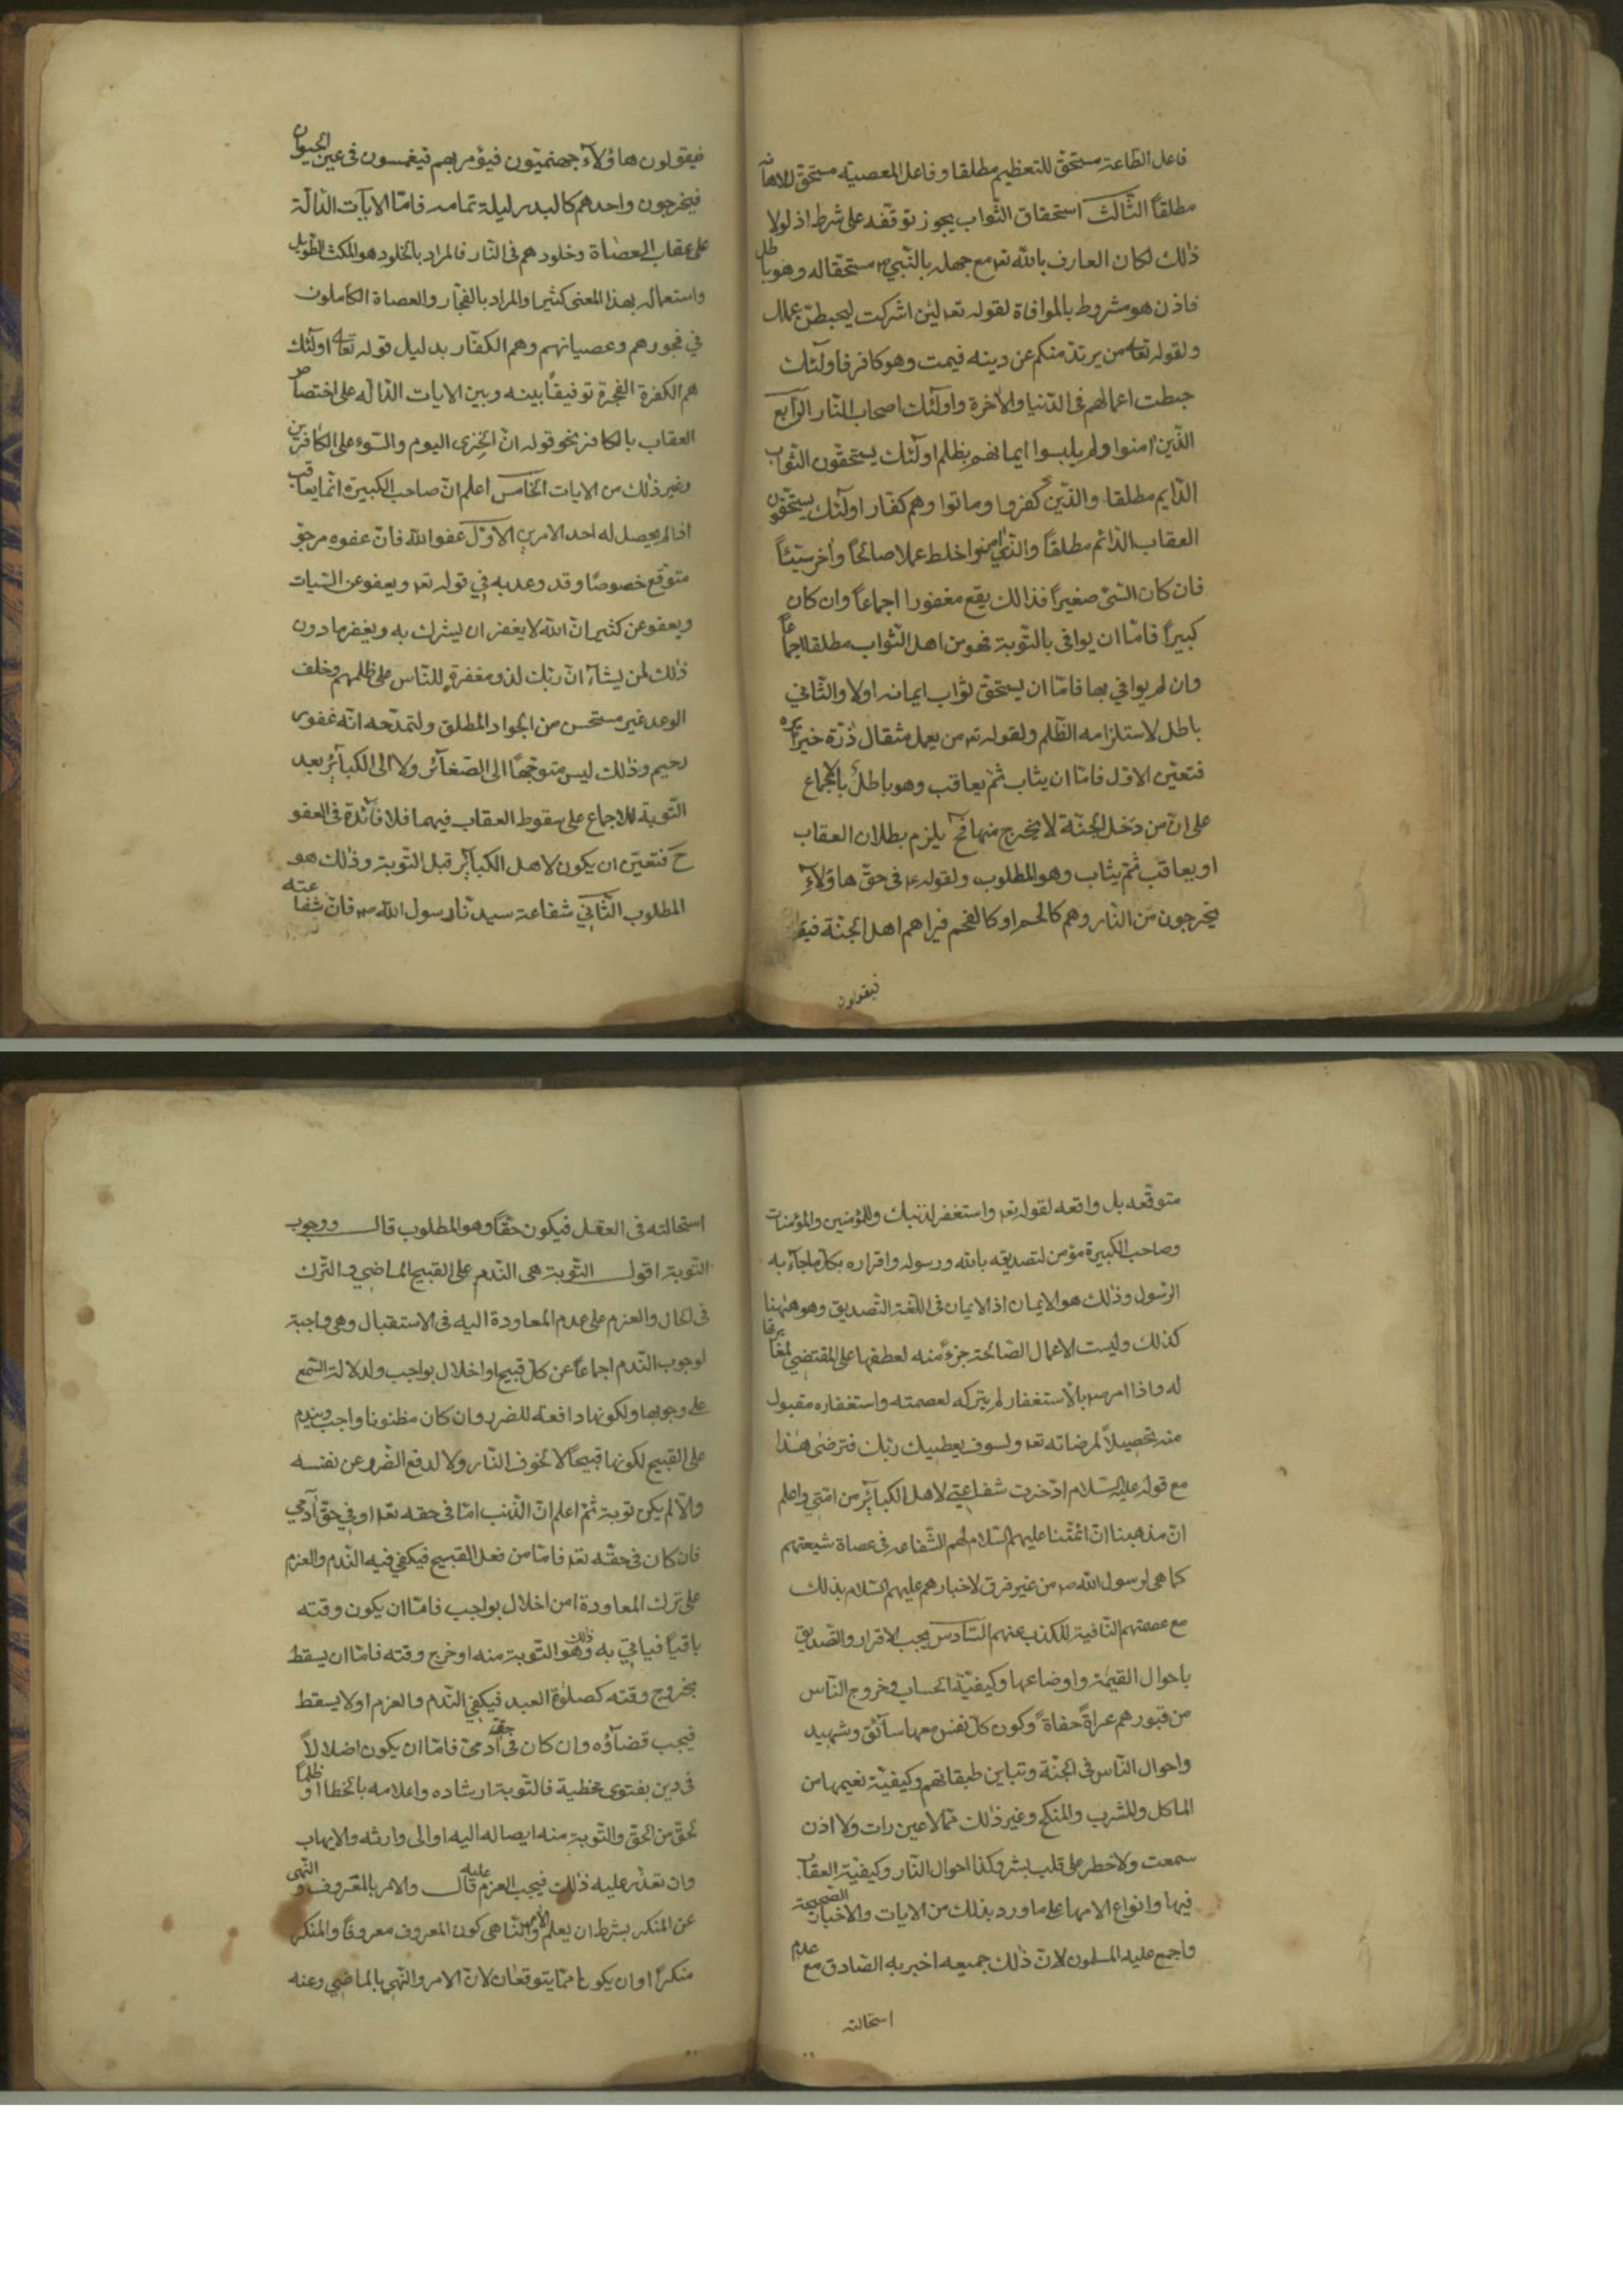 فاعل الطاعة مستحق للتعظيم مطلقا وفاعل المعصية مستحق للاهانة
مطلقاً الثالث استحقاق الثواب يجوز توقفه على شرط اذ لولا
ذلك لكان العارف بالله تعـ مع جهله بالنبي صـ مستحقا له وهو باطل
فاذن هو مشروط بالموافاة لقوله تعـ لئن اشركت ليحبطن عملك
ولقوله تعالى من يرتدد منكم عن دينه فيمت وهو كافر فاولئك
حبطت اعمالهم فى الدنيا والاخرة واولئك اصحاب النار الرابع
الذين امنوا ولم يلبسوا ايمانهم بظلم اولئك يستحقون الثواب
الدايم مطلقا والذين كفروا وماتوا وهم كفار اولئك يستحقون
العقاب الدائم مطلقاً والذي امنوا خلط عملا صالحاً واخر سيئاً
فان كان السيئ صغيراً فذالك يقع مغفورا اجماعاً وان كان
كبيراً فامّا ان يوافى بالتوبة فهو من اهل الثواب مطلقا اجماعاً
وان لم يوافي بها فامّا ان يستحق ثواب ايمانه اولا والثاني
باطل لاستلزامه الظلم ولقوله تعـ من يعمل مثقال ذرة خيراً يره
فتعين الاول فامّا ان يثاب ثم يعاقب وهو باطل بالاجماع
على ان من دخل الجنة لا يخرج منها فح يلزم بطلان العقاب
او يعاقب ثم يثاب وهو المطلوب ولقوله ع في حق هاؤلآء
يخرجون من النار وهم كالحمم او كالفحم فيراهم اهل الجنة فيقو
فيقولون
فيقولون هاؤلآء جهنميون فيؤمر بهم فيغمسون في عين الحيوان
فيخرجون واحدهم كالبدر ليلة تمامه فامّا الايات الدالة
على عقاب العصاة وخلودهم فى النار فالمراد بالخلود هو المكث الطويل
واستعماله بهذا المعنى كثير والمراد بالفجار والعصاة الكاملون
في فجورهم وعصيانهم وهم الكفار بدليل قوله تعالى اولئك
هم الكفرة الفجرة توفيقاً بينه وبين الايات الدالة على اختصاص
العقاب بالكافر نحو قوله ان الخزى اليوم والسوء على الكافرين
وغير ذلك من الايات الخامس اعلم ان صاحب الكبيرة انما يعاقب
اذا لم يحصل له احد الامرين الاول عفو الله فان عفوه مرجو
متوقع خصوصًا وقد وعد به في قوله تعـ ويعفو عن السيات
ويعفو عن كثير ان الله لا يغفر ان يشرك به ويغفر ما دون
ذلك لمن يشاء ان ربك لذو مغفرة للناس على ظلمهم وخلف
الوعد غير مستحسن من الجواد المطلق ولتمدحه انه غفور
رحيم وذلك ليس متوجهاً الى الصغائر ولا الى الكبائر بعد
التوبة للاجماع على سقوط العقاب فيهما فلا فائدة فى العفو
ح فتعين ان يكون لاهل الكبائر قبل التوبة وذلك هو
المطلوب الثاني شفاعة سيدنا رسول الله صـ فان شفاعته
متوقعه بل واقعه لقوله تعـ واستغفر لذنبك وللمؤمنين والمؤمنات
وصاحب الكبيرة مؤمن لتصديقه بالله ورسوله واقراره بكل ما جاء به
الرسول وذلك هو الايمان اذ الايمان فى اللغة التصديق وهو ههنا
كذلك وليست الاعمال الصالحة جزءً منه لعطفها على المقتضي لمغايرتها
له واذا امر صـ بالاستغفار لم يتركه لعصمته واستغفاره مقبول
منه تحصيلاً لمرضاته تعـ ولسوف يعطيك ربك فترضى هذا
مع قوله عليه السلام ادخرت شفاعتي لاهل الكبائر من امتي واعلم
ان مذهبنا ان ائمتنا عليهم السلام لهم الشفاعه فى عصاة شيعتهم
كما هى لرسول الله صـ من غير فرق لاخبارهم عليهم السلام بذلك
مع عصمتهم النافية للكذب عنهم السادس يجب الاقرار والتصديق
باحوال القيمة واوضاعها وكيفية الحساب وخروج الناس
من قبورهم عراةً حفاةً وكون كل نفس معها سائق وشهيد
واحوال الناس فى الجنة وتباين طبقاتهم وكيفية نعيمها من
الماكل والمشرب والمنكح وغير ذلك مما لا عين رات ولا اذن
سمعت ولا خطر على قلب بشر وكذا احوال النار وكيفية العقاب
فيها وانواع الامها على ما ورد بذلك من الايات والاخبار الصحيحة
واجمع عليه المسلمون لان ذلك جميعه اخبر به الصادق مع عدم
استحالته
استحالته فى العقل فيكون حقاً وهو المطلوب قال ووجوب
التوبة اقول التوبة هى الندم على القبيح الماضي والترك
فى الحال والعزم على عدم المعاودة اليه فى الاستقبال وهى واجبة
لوجوب الندم اجماعاً عن كل قبيح او اخلال بواجب ولدلالة السمع
على وجوبها ولكونها دافعة للضرر وان كان مظنونا واجب ويندم
على القبيح لكونها قبيحاً لا لخوف النار ولا لدفع الضرر عن نفسه
والا لم يكن توبة ثم اعلم ان الذنب امّا فى حقه تعـ او في حق آدمي
فان كان فى حقه تعـ فامّا من فعل القبيح فيكفي فيه الندم والعزم
على ترك المعاودة او من اخلال بواجب فامّا ان يكون وقته
باقياً فياتي به وذلك هو التوبة منه او خرج وقته فامّا ان يسقط
بخروج وقته كصلوة العيد فيكفي الندم والعزم او لا يسقط
فيجب قضاؤه وان كان فى حق آدمى فامّا ان يكون اضلالاً
فى دين بفتوى مخطية فالتوبة ارشاده واعلامه بالخطا او ظلماً
لحق من الحق والتوبة منه ايصاله اليه او الى وارثه والايهاب
وان تعذر عليه ذلك فيجب العزم عليه قال والامر بالمعروف والنهى
عن المنكر بشرط ان يعلم الامر والناهى كون المعروف معروفاً والمنكر
منكراً او ان يكونا ممّا يتوقعان لان الامر والنهي بالماضي وعنه